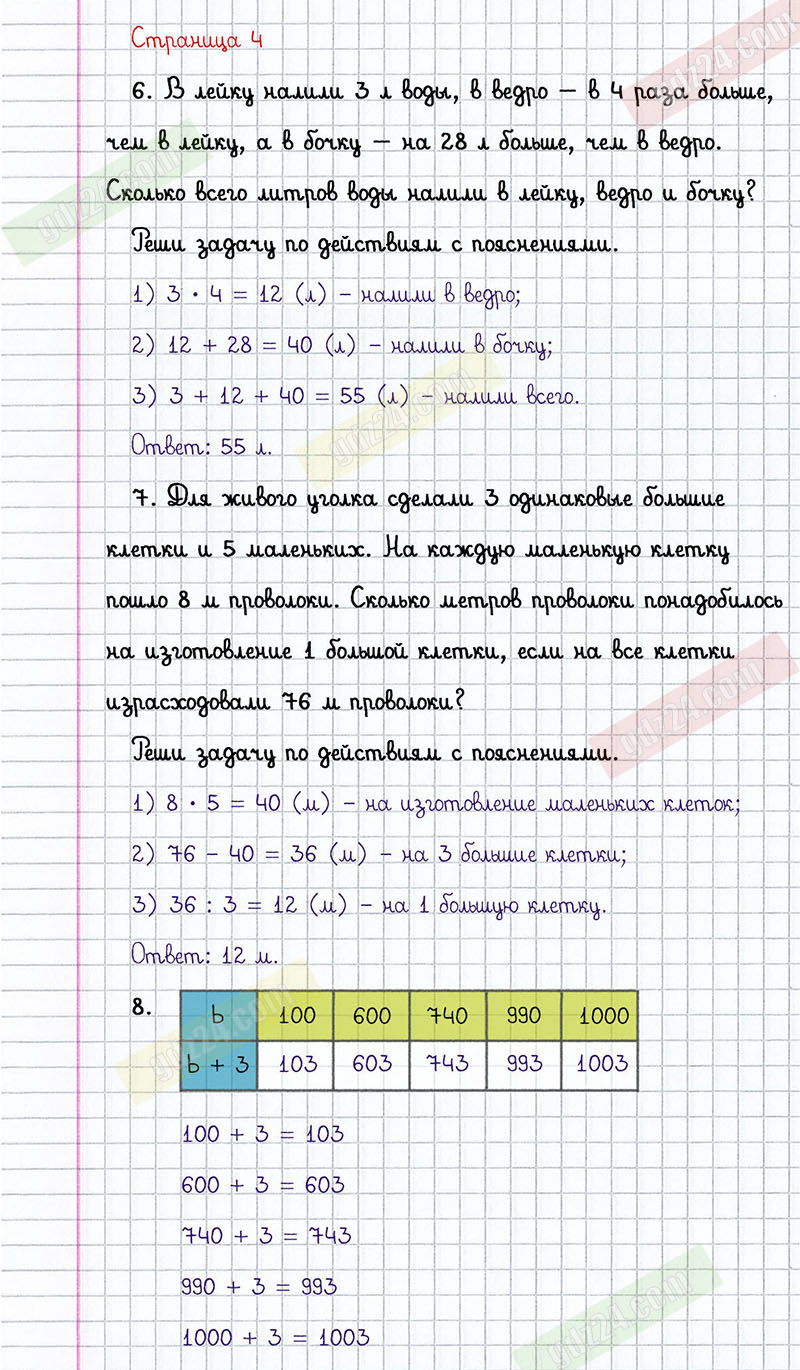 Страница 4
6. В лейку налили 3 л воды, в ведро – в 4 раза больше,
чем в лейку, а в бочку – на 28 л больше, чем в ведро.
Сколько всего литров воды налили в лейку, ведро и бочку?
Реши задачу по действиям с пояснениями.
1) 3 · 4 = 12 (л) - налили в ведро;
2) 12 + 28 = 40 (л) - налили в бочку;
3) 3 + 12 + 40 = 55 (л) - налили всего.
Ответ: 55 л.
7. Для живого уголка сделали 3 одинаковые большие
клетки и 5 маленьких. На каждую маленькую клетку
пошло 8 м проволоки. Сколько метров проволоки понадобилось
на изготовление 1 большой клетки, если на все клетки
израсходовали 76 м проволоки?
Реши задачу по действиям с пояснениями.
1) 8 · 5 = 40 (м) - на изготовление маленьких клеток;
2) 76 - 40 = 36 (м) - на 3 большие клетки;
3) 36 : 3 = 12 (м) - на 1 большую клетку.
Ответ: 12 м.
8. b 100 600 740 990 1000
b + 3 103 603 743 993 1003
100 + 3 = 103
600 + 3 = 603
740 + 3 = 743
990 + 3 = 993
1000 + 3 = 1003
gdz24.com
gdz24.com
gdz24.com
gdz24.com
gdz24.com
gdz24.com